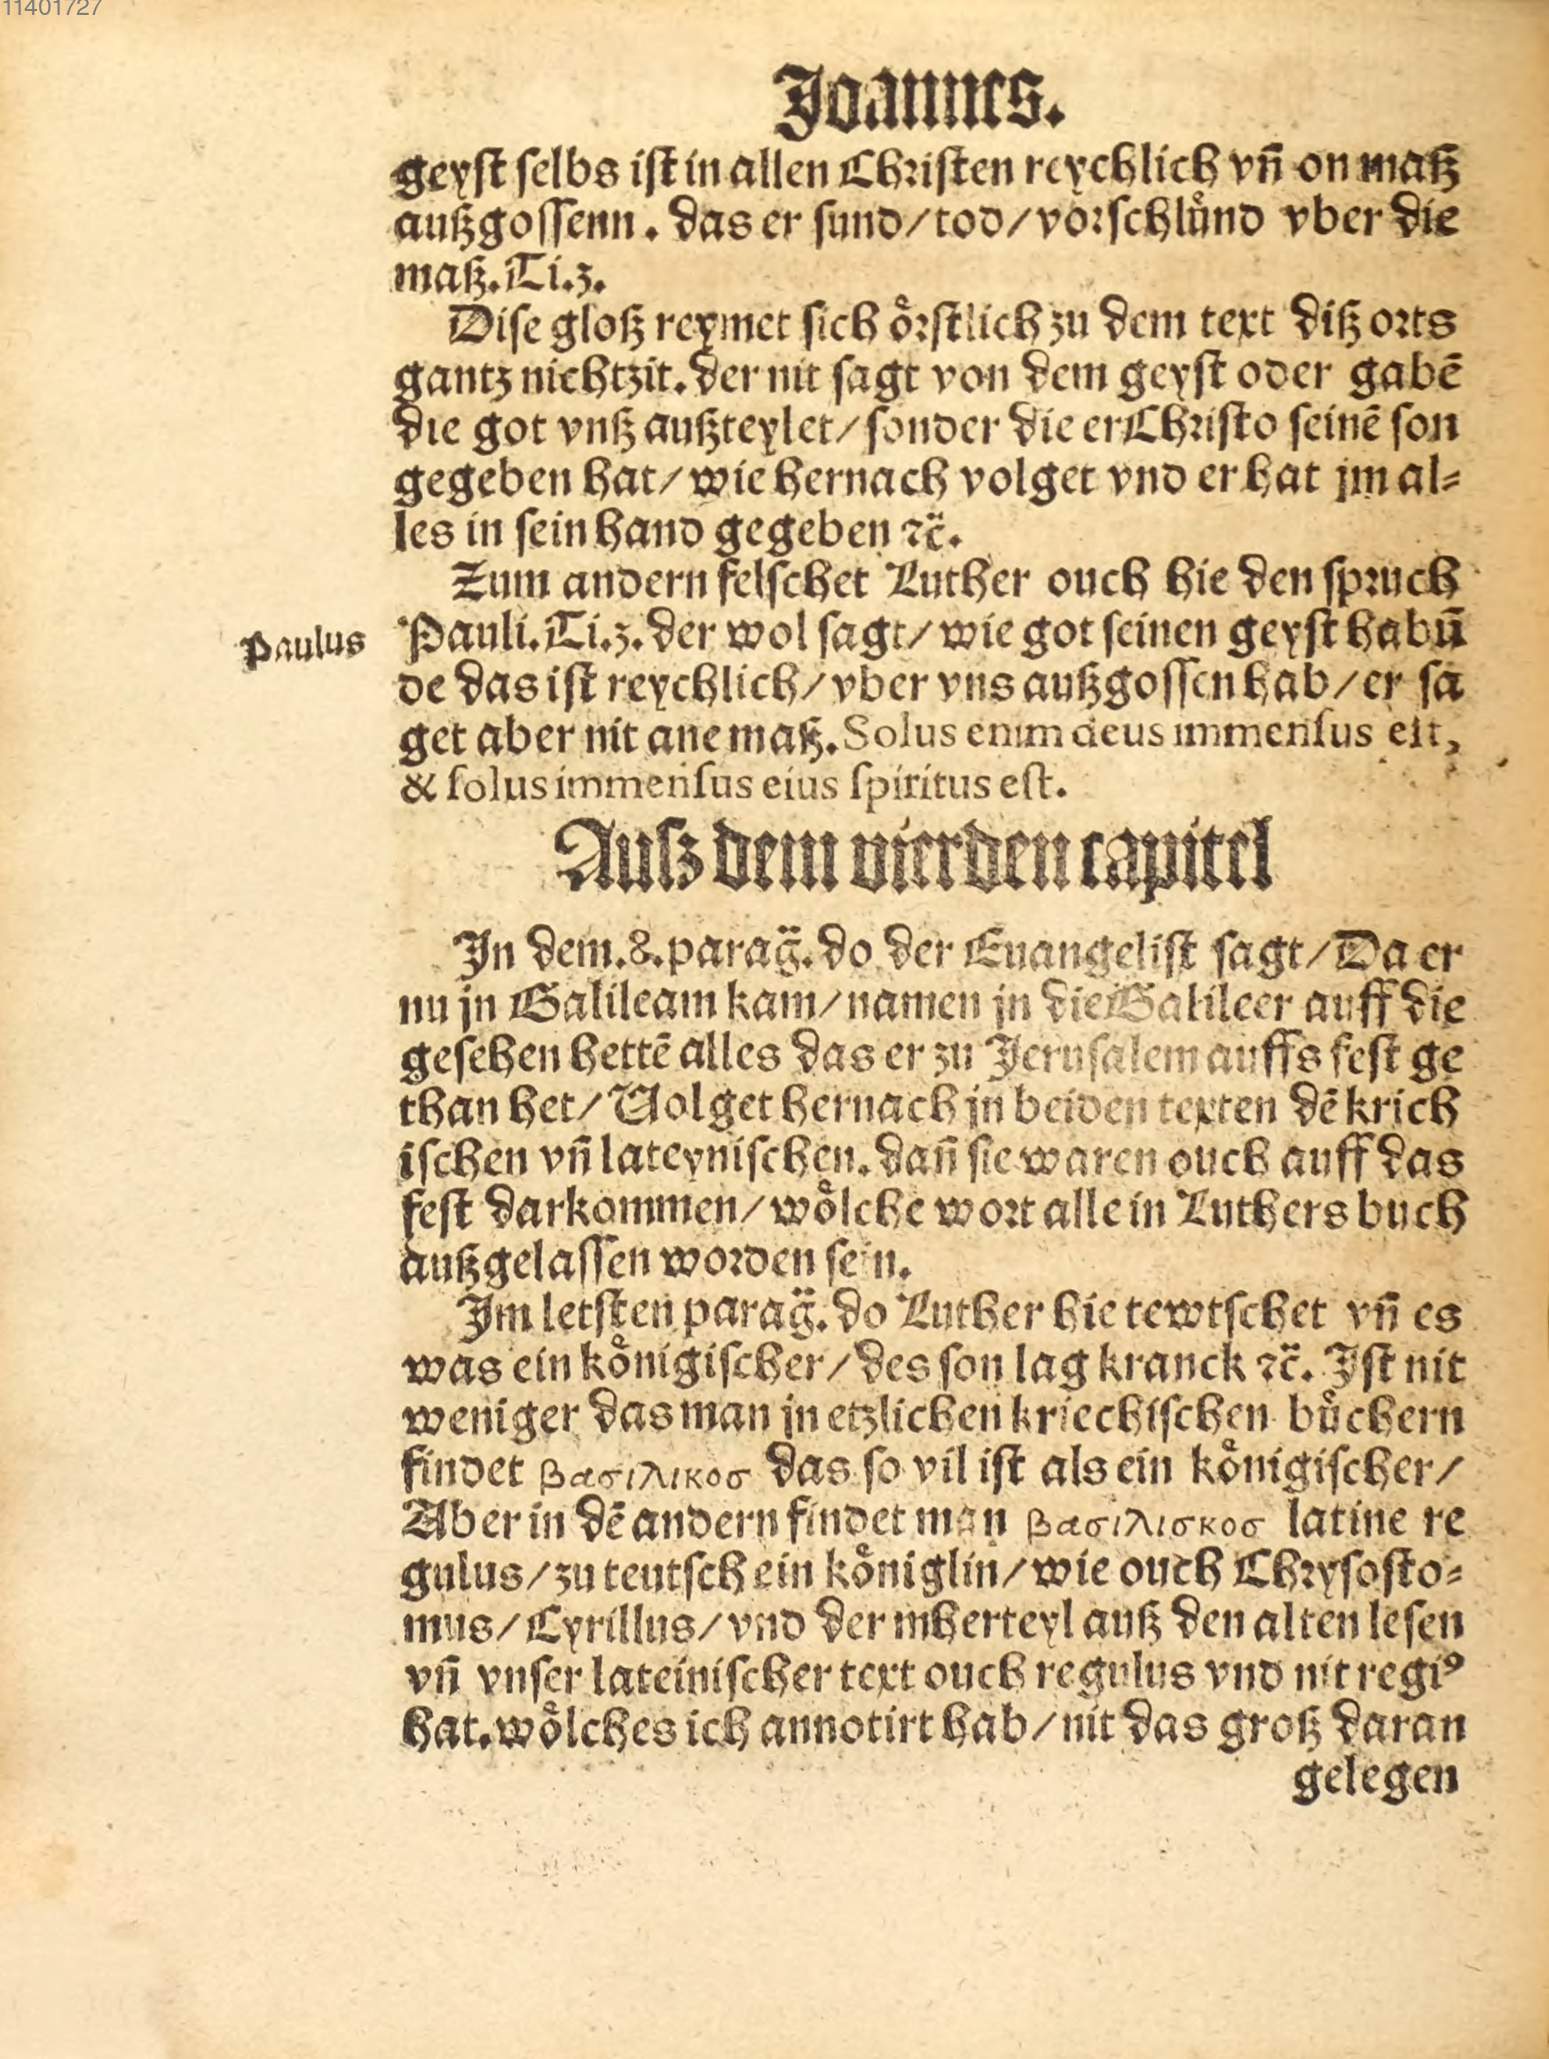 11401727
Joannes.
geyst selbs ist in allen Christen reychlich vñ on maß
außgossenn. das er sund/tod/vorschlůnd vber die
maß. Ti.3.
Dise gloß reymet sich o̊rstlich zu dem text diß orts
gantz nichtzit. der nit sagt von dem geyst oder gabē
die got vnß außteylet/sonder die er Christo seinē son
gegeben hat/wie hernach volget vnd er hat jm al⸗
les in sein hand gegeben ꝛc̈.
Zum andern felschet Luther ouch hie den spruch
Paulus
Pauli. Ti.3. der wol sagt/wie got seinen geyst habū
de das ist reychlich/vber vns außgossen hab/er sa
get aber nit ane maß. Solus enim deus immensus est,
& solus immensus eius spiritus est.
Ausz dem vierden capitel
In dem.8.parag̈. do der Euangelist sagt/Da er
nu jn Galileam kam/namen jn die Galileer auff die
gesehen hettē alles das er zu Jerusalem auffs fest ge
than het/Volget hernach jn beiden texten dē krich
ischen vñ lateynischen. dañ sie waren ouch auff das
fest darkommen/wo̊lche wort alle in Luthers buch
außgelassen worden sein.
Im letsten parag̈. do Luther hie tewtschet vñ es
was ein ko̊nigischer/des son lag kranck ꝛc̈. Ist nit
weniger das man jn etzlichen kriechischen bůchern
findet βασιλικοσ das so vil ist als ein ko̊nigischer/
Aber in dē andern findet man βασιλισκοσ latine re
gulus/zu teutsch ein ko̊niglin/wie ouch Chrysosto⸗
mus/Cyrillus/vnd der mherteyl auß den alten lesen
vñ vnser lateinischer text ouch regulus vnd nit regiꝰ
hat. wo̊lches ich annotirt hab/nit das groß daran
gelegen